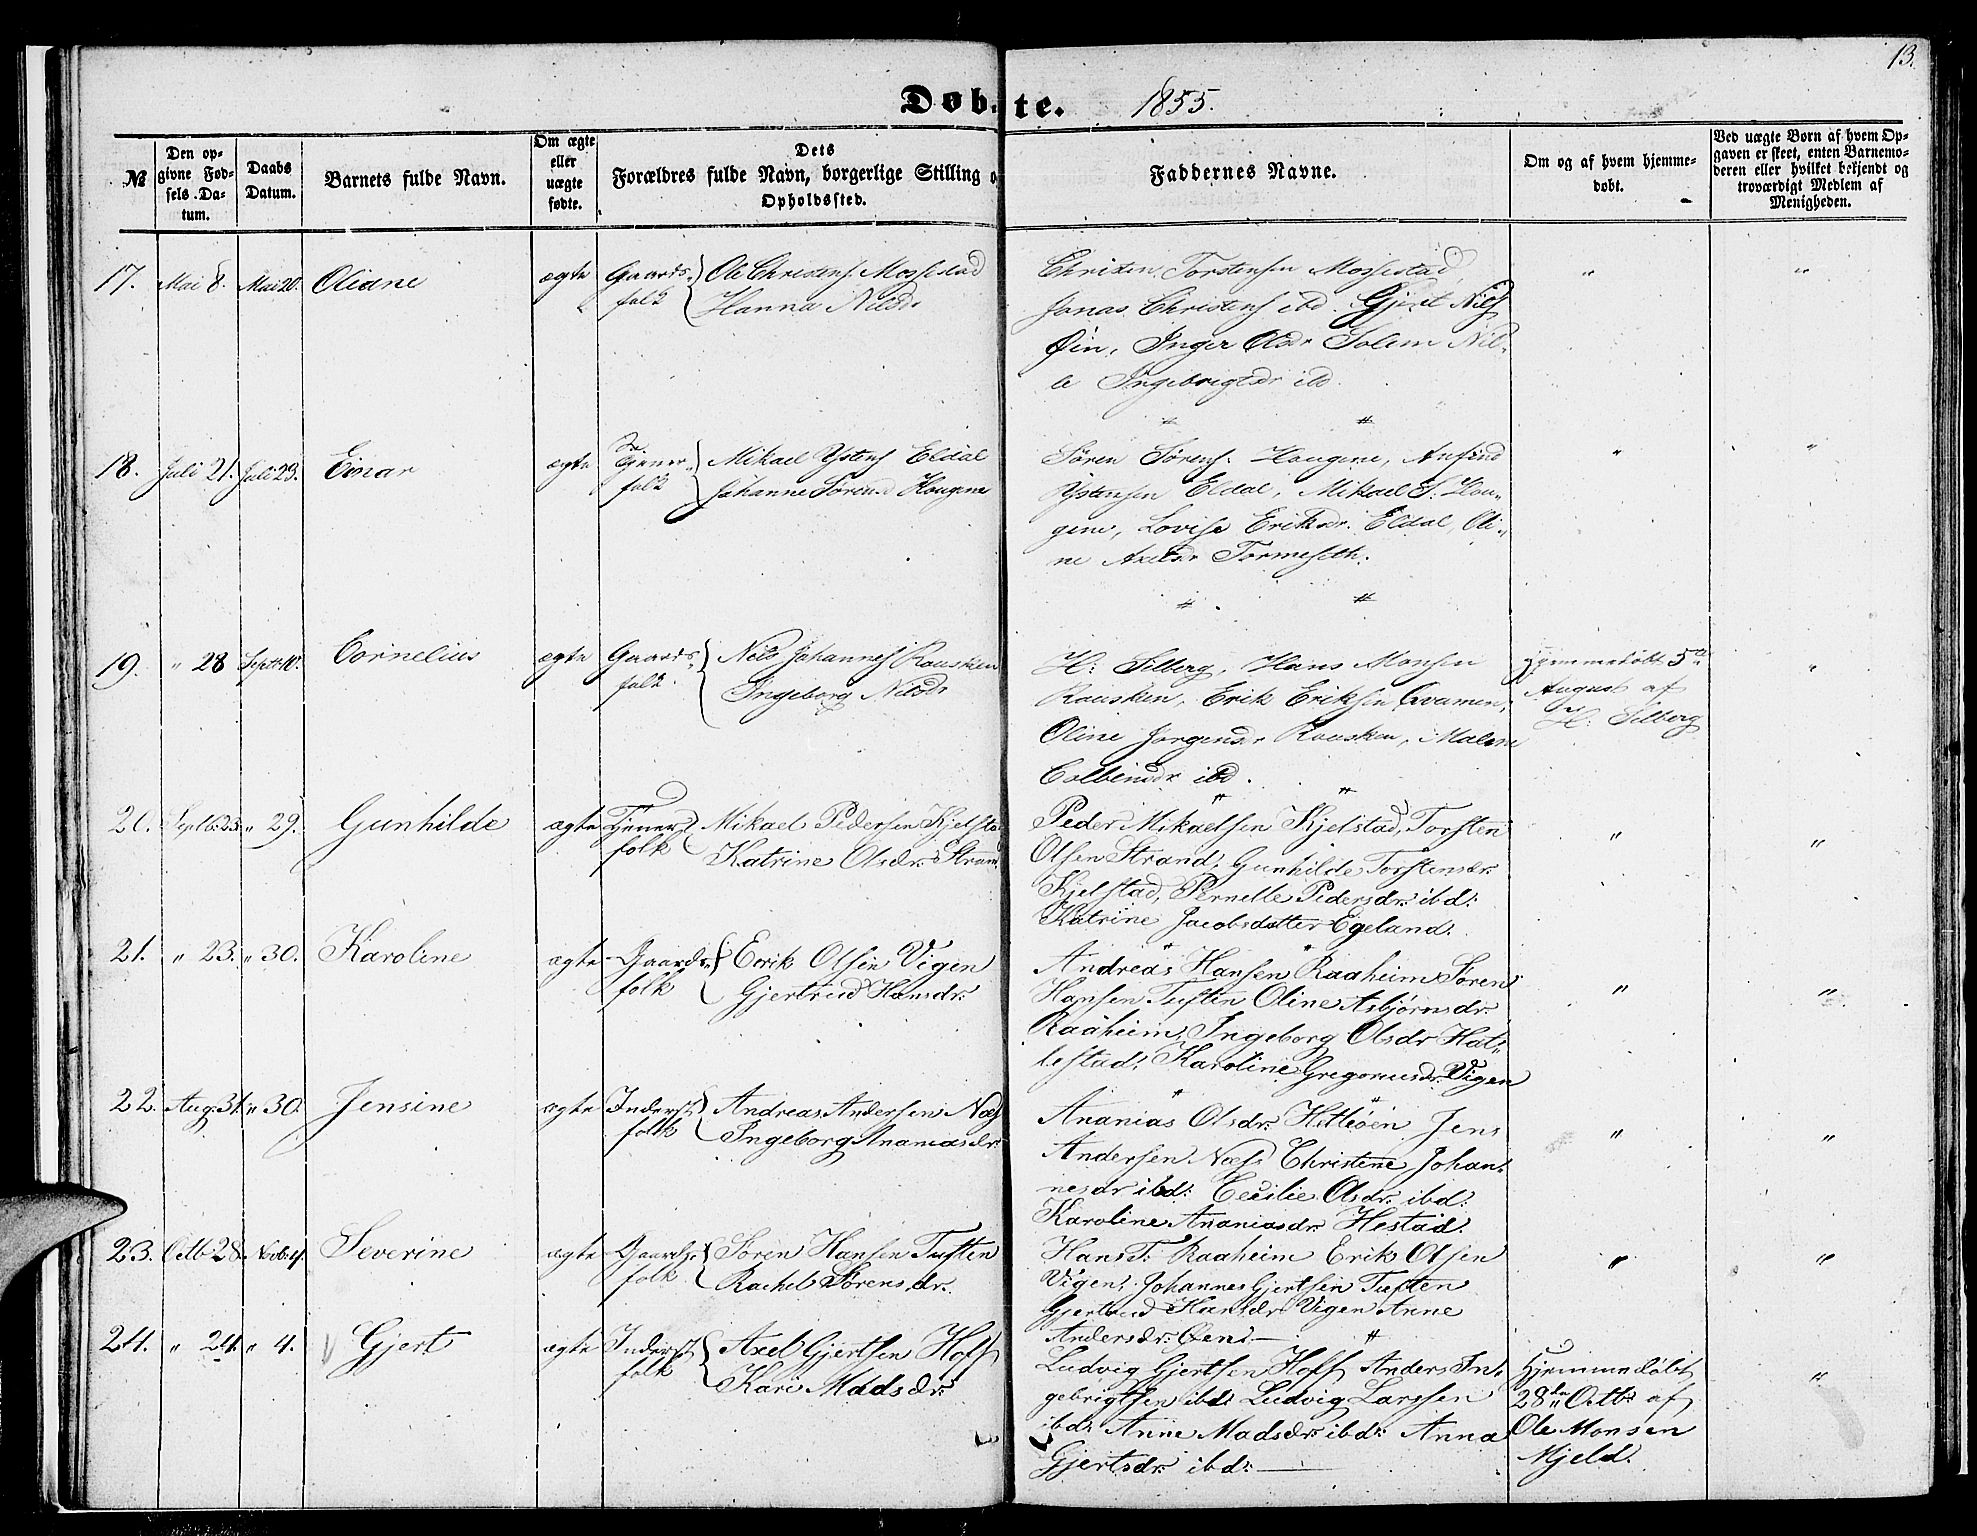 13.
Døbte. 1855.
№
Den opgivne Fødsels Datum.
Daabs Datum.
Barnets fulde Navn.
Om ægte eller uægte fødte.
Dets Forældres fulde Navn, borgerlige Stilling o
Opholdssted.
Faddernes Navne.
Om og af hvem hjemmedøbt.
Ved uægte Børn af hvem Opgaven er skeet, enten Barnemoderen eller hvilket bekjendt og troværdigt Medlem af Menigheden.
17. Mai 8. Mai 20. Oliane ægte Gaards-folk Ole Christens. Mossestad
Hanna Nilsdr
Christen Torstensen Mossestad
Jonas Christens ibd. Gjert Nils
Øin, Inger Olsdr Solem Nil-
le Ingebrigtsdr ibd.
18. Juli 21. Juli 23. Einar ægte Tjener-folk Mikael Ystens Eldal
Johanne Sørensd Hougene
Søren Sørens. Hougene, Anfind
Ystensen Eldal, Mikael S. Hou-
gene, Lovise Eriksdr. Eldal, Oli-
ne Axelsdr Tormeseth.
19. " 28 Septr 10. Cornelius ægte Gaards-folk. Nils Johannes Rousken
Ingeborg Nilsdr
H: Selberg, Hans Monsen
Rausken, Erik Eriksen Qvamen,
Oline Jørgensdr Rousken, Malene
Colbensdr ibd.
Hjemmedøbt 5te
August af
H. Selberg
20. Septb. 23. " 29. Gunhilde ægte Tjener folk Mikael Pedersen Kjelstad
Katrine Olsdr. Stran
Peder Mikaelsen Kjelstad, Torsten
Olsen Strand, Gunhilde Torstensdr.
Kjelstad, Pernelle Pedersdr. ibd:
Katrine Jacobsdatter Egeland.
21. " 23. " 30. Karoline ægte Gaards-folk Erik Olsen Vigen
Gjertrud Hansdr.
Andreas Hansen Raaheim Søren
Hansen Tuften Oline Asbjørnsdr.
Raaheim, Ingeborg Olsdr Hat-
lestad: Karoline Gregoriusdr. Vigen
22. Aug. 31. " 30. Jensine ægte Inderst folk Andreas Andersen Næs
Ingeborg Ananiasdr.
Ananias Olsdr. Hitleøen Jens
Andersen Næss Christene Johan-
nesdr ibd: Cecilie Olsdr. ibd:
Karoline Ananiasdr. Hestad.
23. Octb 28. Novb. 4. Severine ægte Gaards-folk Søren Hansen Tuften
Rachel Sørensdr.
Hans T: Raaheim Erik Olsen
Vigen, Johannes Gjertsen Tuften
Gjertrud Hansdr Vigen Anne
Andersdr: Øens
24. " 24. " 4. Gjert ægte Inderst folk Axel Gjertsen Hoff
Kari Madsdr.
Ludvig Gjertsen Hoff Anders In-
gebrigtsen ibd: Ludvig Larssen
ibd: Anne Madsdr. ibd: Anna
Gjertsdr. ibd:
Hjemmedøbt
28de Octb: af
Ole Monsen
Mjeld.